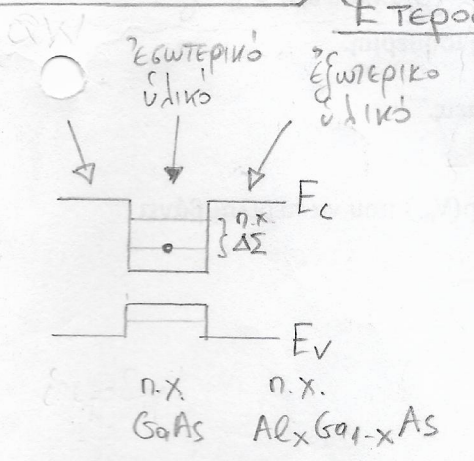 Ἑτερο
ἐσωτερικό
ὑλικό
ἐξωτερικο
ὑλικό
Ec
π.χ.
ΔΣ
Ev
π.χ.
GaAs
π.χ.
AlxGa1-xAs